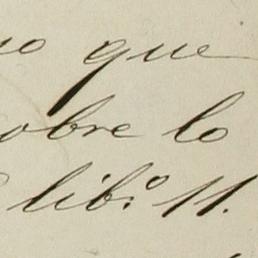 no que
sobre lo
lib.º 11.